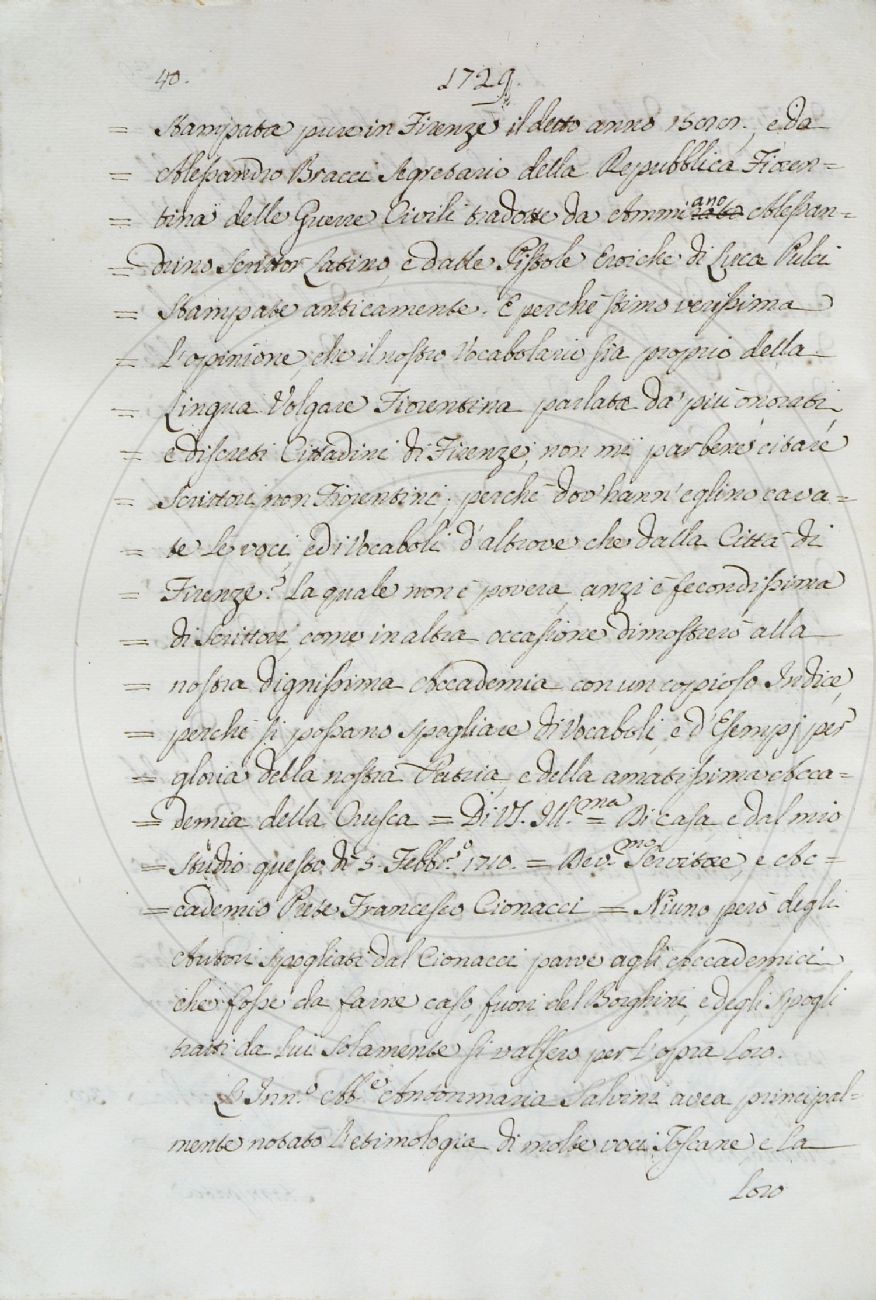 40.
1729.
= Stampata pure in Firenze il detto anno e da
= Alessandro Bracci Segretario della Repubblica Fioren=
= tina delle Guerre Civili tradotte da Ammiano Alessan=
= drino Scrittor Latino, e dalle Pistole Eroiche di Luca Pulci
= Stampate anticamente. E perchè stimo verissima
= L'opinione, che il nostro Vocabolario sia proprio della
= Lingua Volgare Fiorentina parlata da' più onorati,
= e discreti Cittadini di Firenze, non mi par bene citare
= Scrittori non Fiorentini; perchè dov'hann'eglino cava=
= te le voci, ed i Vocaboli d'altrove che dalla Città di
= Firenze? La quale non è povera, anzi è fecondissima
= di Scrittori, come in altra occasione dimostrerò alla
= nostra dignissima Accademia con un copioso Indice,
= perchè si possano spogliare di Vocaboli, e d'Esempj per
= gloria della nostra Patria, e della amatissima Acca=
= demia della Crusca = Di V.S. Ill.ma = Di casa e dal mio
= Studio questo dì 5. Febbr.o 1710. = Dev.mo Servitore, e Ac=
= cademico Prete Francesco Cionacci = Niuno però degli
Autori spogliati dal Cionacci parve agli Accademici
che fosse da farne caso, fuori del Borghini, e degli spogli
tratti da lui solamente si valsero per l'opra loro.
L'Inn.o Abb.e Antonmaria Salvini avea principal=
mente notato l'etimologia di molte voci Toscane, e la
loro